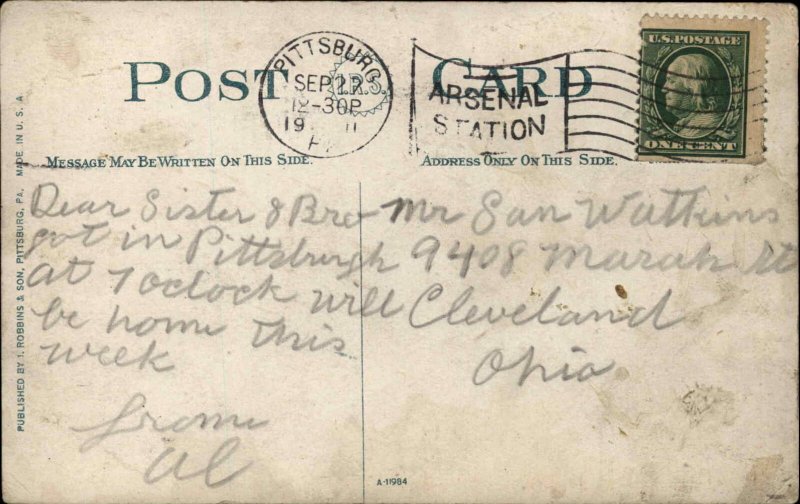 POST CARD
PITTSBURG
SEP 22
12-30P
19 11
PA
I.R.S.
ARSENAL
STATION
U.S. POSTAGE
ONE CENT
MESSAGE MAY BE WRITTEN ON THIS SIDE.
ADDRESS ONLY ON THIS SIDE.
PUBLISHED BY I. ROBBINS & SON, PITTSBURG, PA. MADE IN U.S.A
Dear Sister & Bro
got in Pittsburgh
at 7 oclock will
be home this
week
from
Al
Mr San Watkins
9408 St
Cleveland
Ohio
A-11984